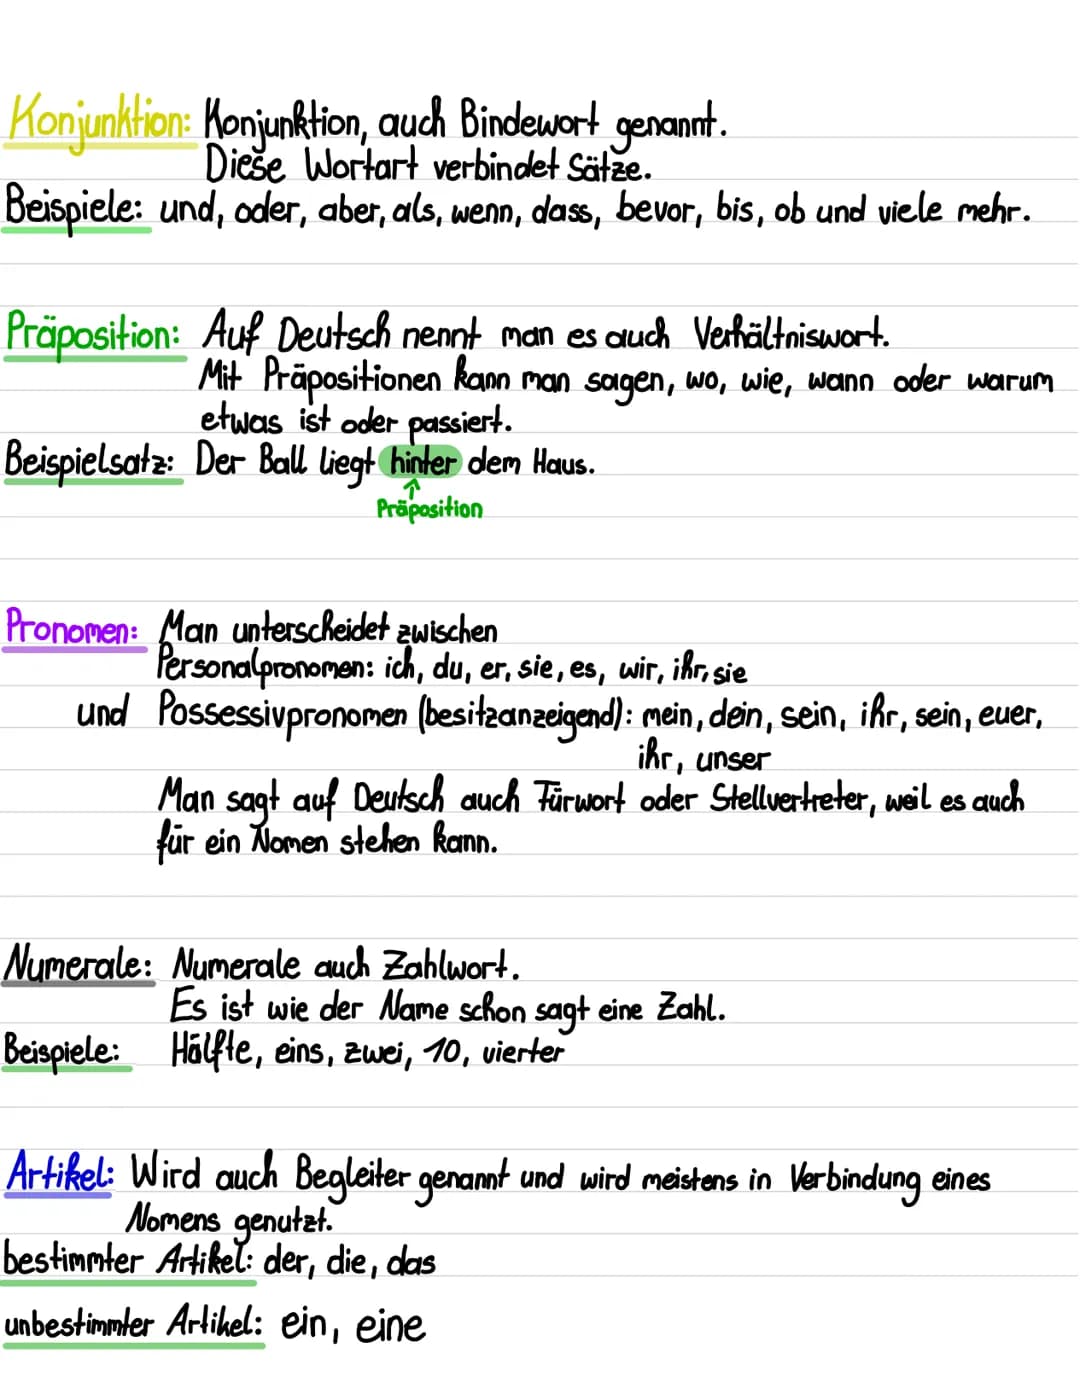 Konjunktion: Konjunktion, auch Bindewort genannt.
Diese Wortart verbindet Sätze.
Beispiele: und, oder, aber, als, wenn, dass, bevor, bis, ob und viele mehr.
Präposition: Auf Deutsch nennt man es auch Verhältniswort.
Mit Präpositionen kann man sagen, wo, wie, wann oder warum
etwas ist oder passiert.
Beispielsatz: Der Ball liegt hinter dem Haus.
Präposition
Pronomen: Man unterscheidet zwischen
Personalpronomen: ich, du, er, sie, es, wir, ihr, sie
und Possessivpronomen (besitzanzeigend): mein, dein, sein, ihr, sein, euer,
ihr, unser
Man sagt auf Deutsch auch Fürwort oder Stellvertreter, weil es auch
für ein Nomen stehen kann.
Numerale: Numerale auch Zahlwort.
Es ist wie der Name schon sagt eine Zahl.
Beispiele: Hälfte, eins, zwei, 10, vierter
Artikel: Wird auch Begleiter genannt und wird meistens in Verbindung eines
Nomens genutzt.
bestimmter Artikel: der, die, das
unbestimmter Artikel: ein, eine